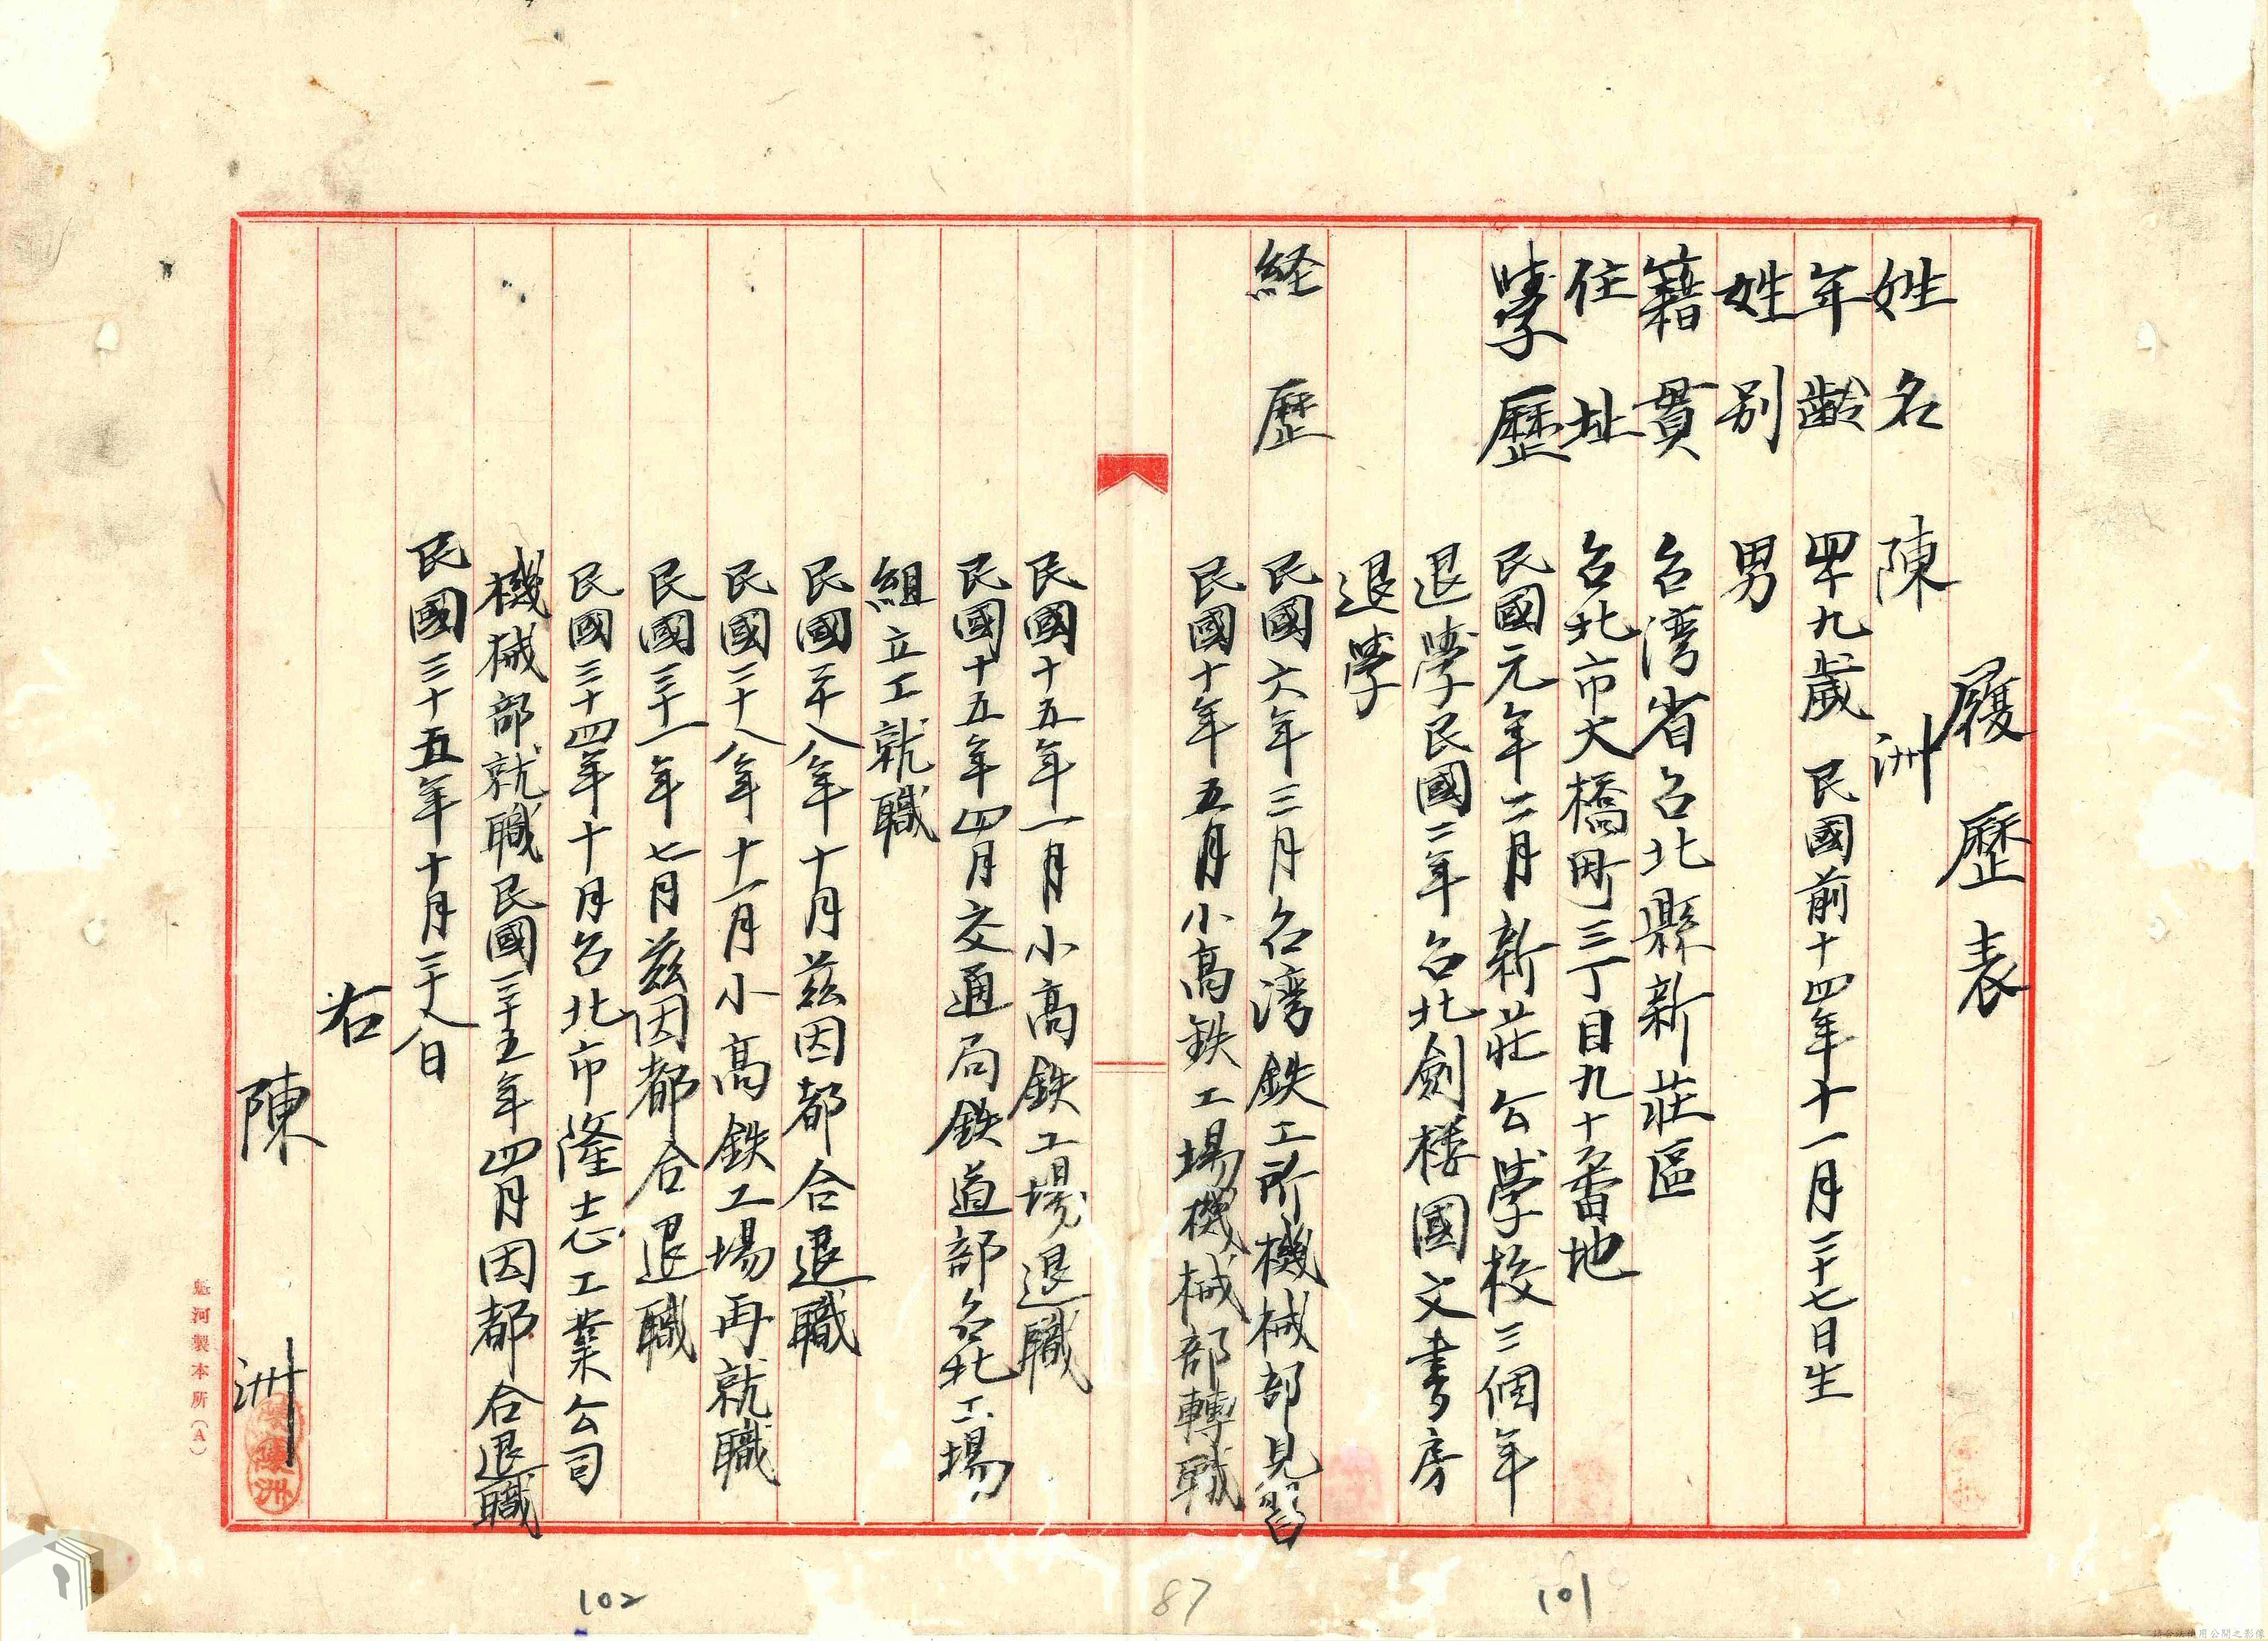 履歷表
姓名 陳洲
年齡 四十九歲 民國前十四年十一月二十七日生
姓別 男
籍貫 台湾省台北縣新莊區
住址 台北市大橋町三丁目九十六番地
學歷 民國元年二月新莊公學校三個年
退學民國三年台北劍楼國文書房
退學
経歷 民國六年三月台湾鉄工所機械部見習
民國十年五月小高鉄工場機械部轉職
民國十五年一月小高鉄工場退職
民國十五年四月交通局鉄道部台北工場
組立工就職
民國二十八年十月茲因都合退職
民國二十八年十一月小高鉄工場再就職
民國三十一年七月茲因都合退職
民國三十四年十月台北市隆志工業公司
機械部就職民國三十五年四月因都合退職
民國三十五年十月二十八日
右
陳洲
陳洲
河製本所(A)
101
87
102